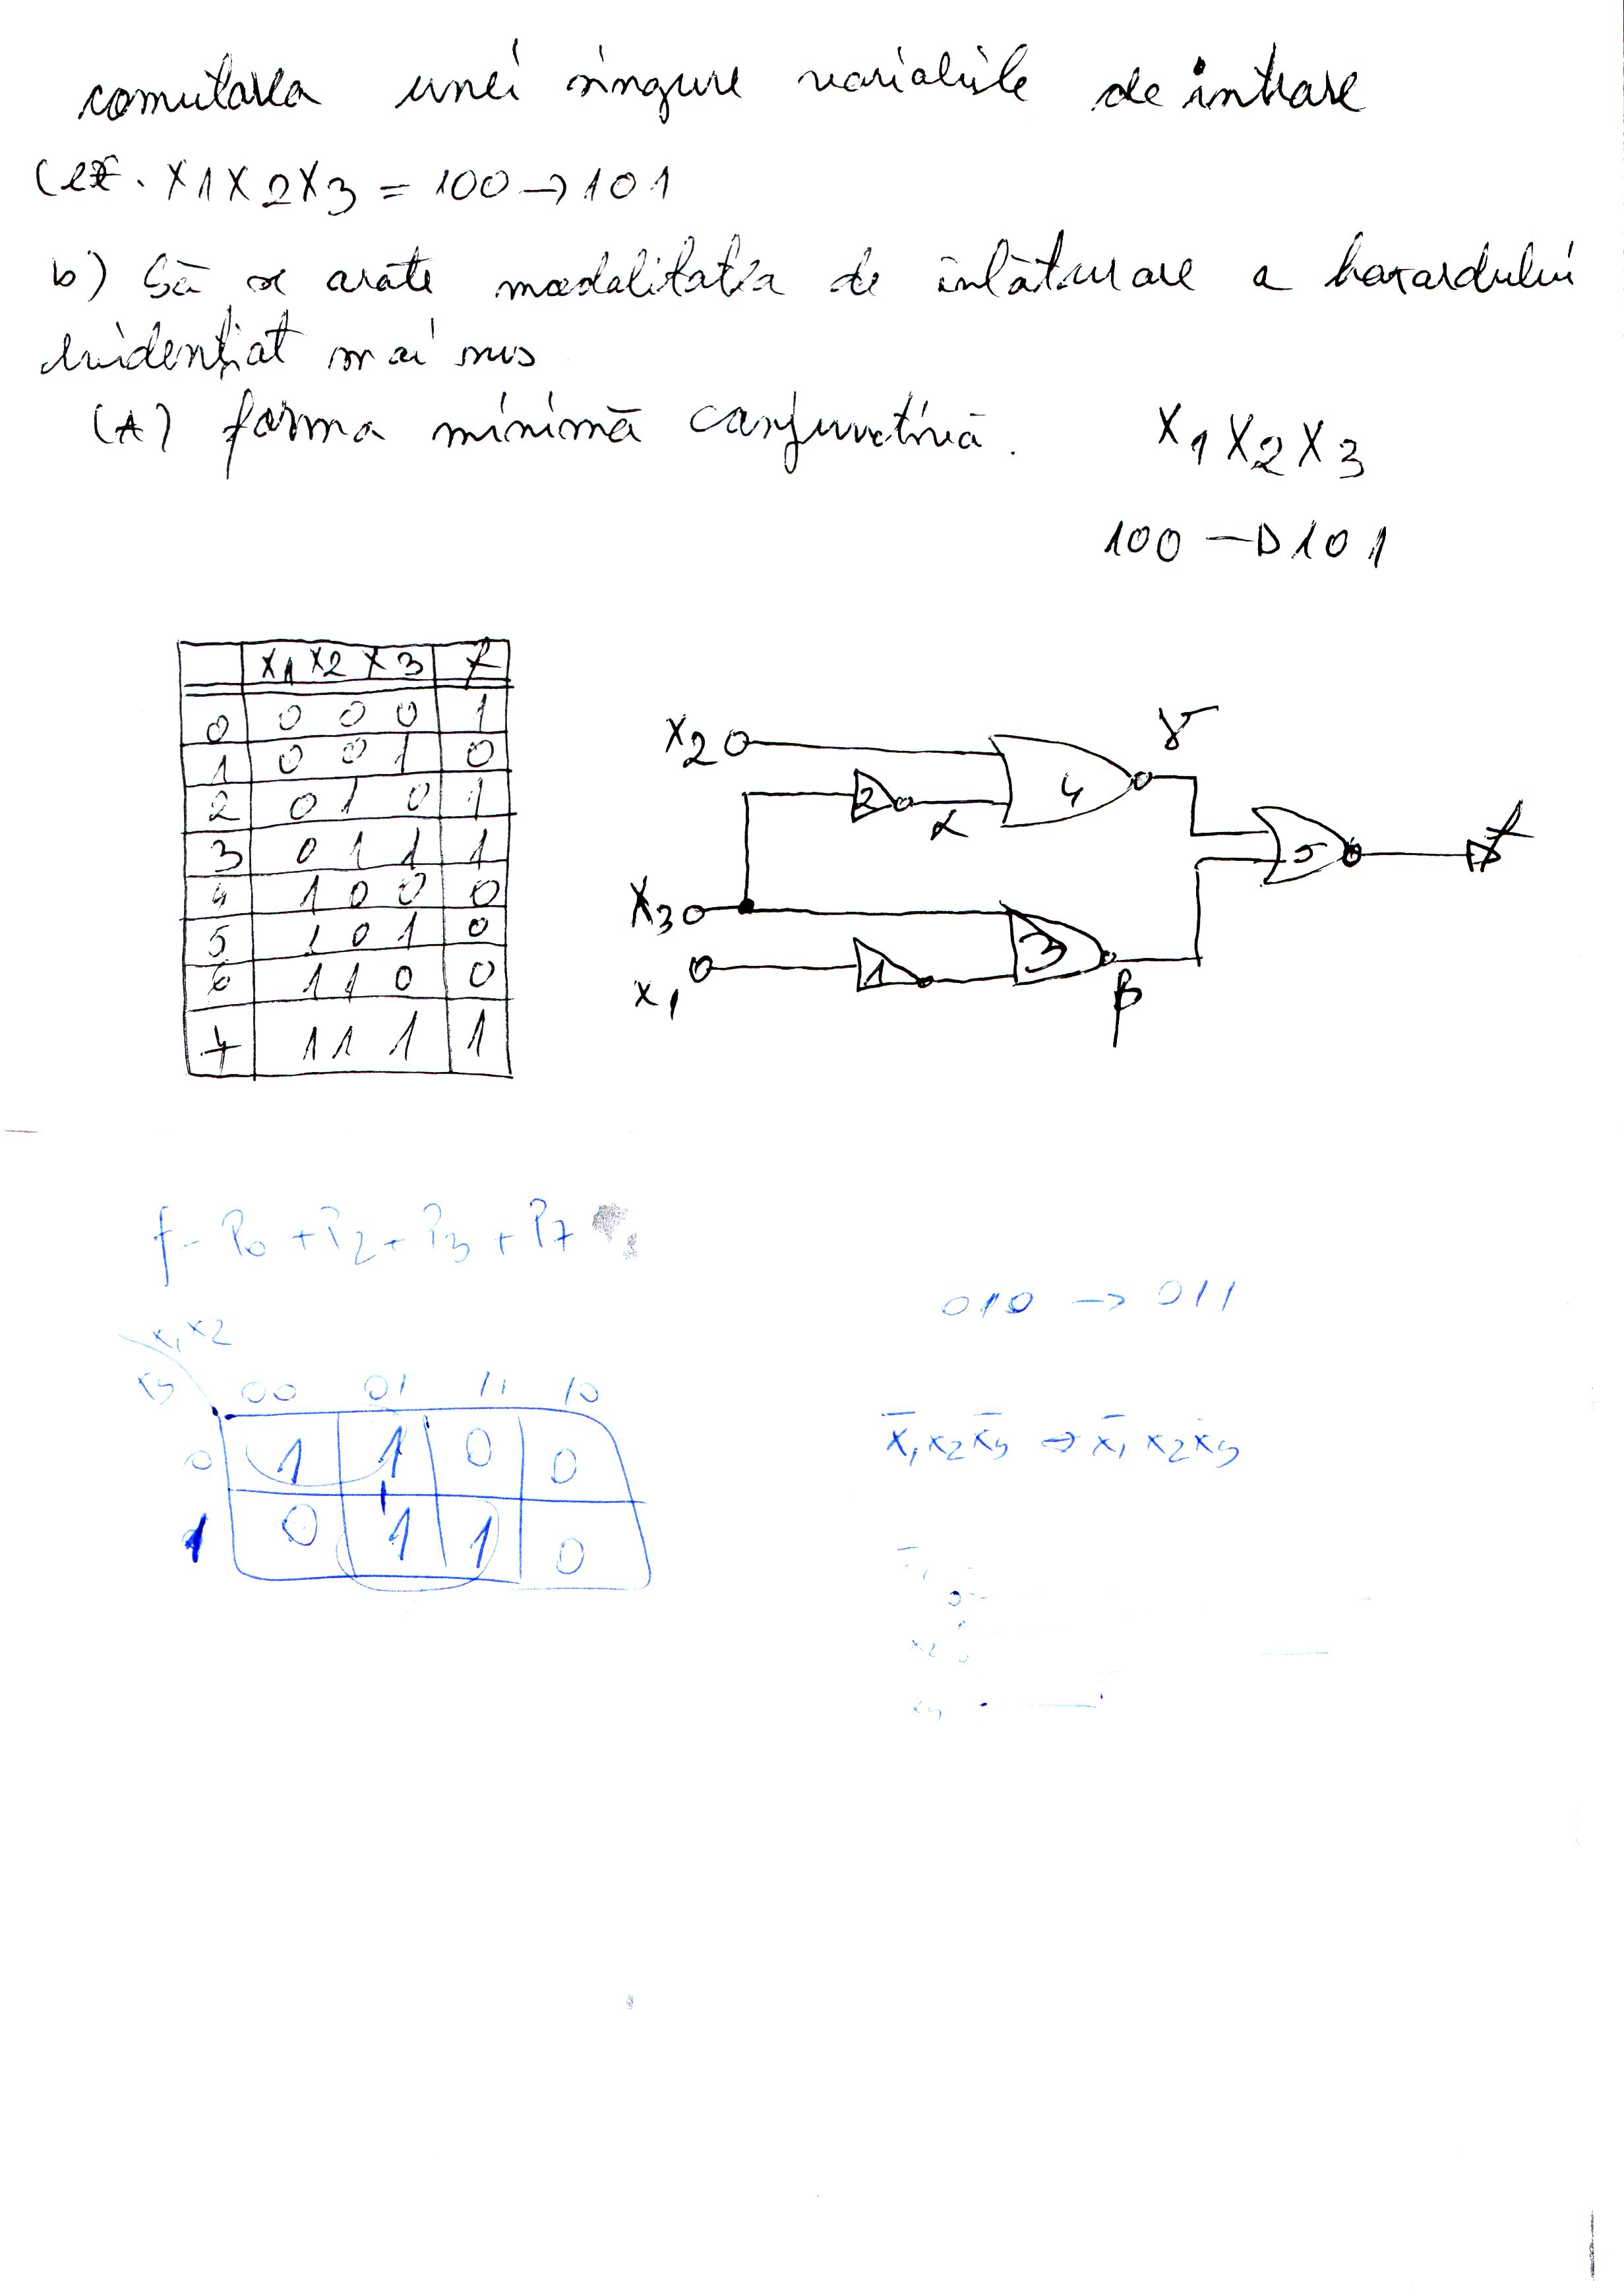 comutarea unei singure variabile de intrare
(ex. x1x2x3 = 100 → 101
b) Să se arate modalitatea de înlăturare a hazardului
evidențiat mai sus
(A) forma minimă conjunctivă. x1x2x3
100 → 101
x1 x2 x3 f
0 0 0 0 1
1 0 0 1 0
2 0 1 0 1
3 0 1 1 1
4 1 0 0 0
5 1 0 1 0
6 1 1 0 0
7 1 1 1 1
x2 4 γ
2 α
5 f
x3 3
x1 1 β
f = P0 + P2 + P3 + P7
010 → 011
x1x2
x3 00 01 11 10
0 1 1 0 0
1 0 1 1 0
x̄1x2x̄3 → x̄1x2x3
x2
x3